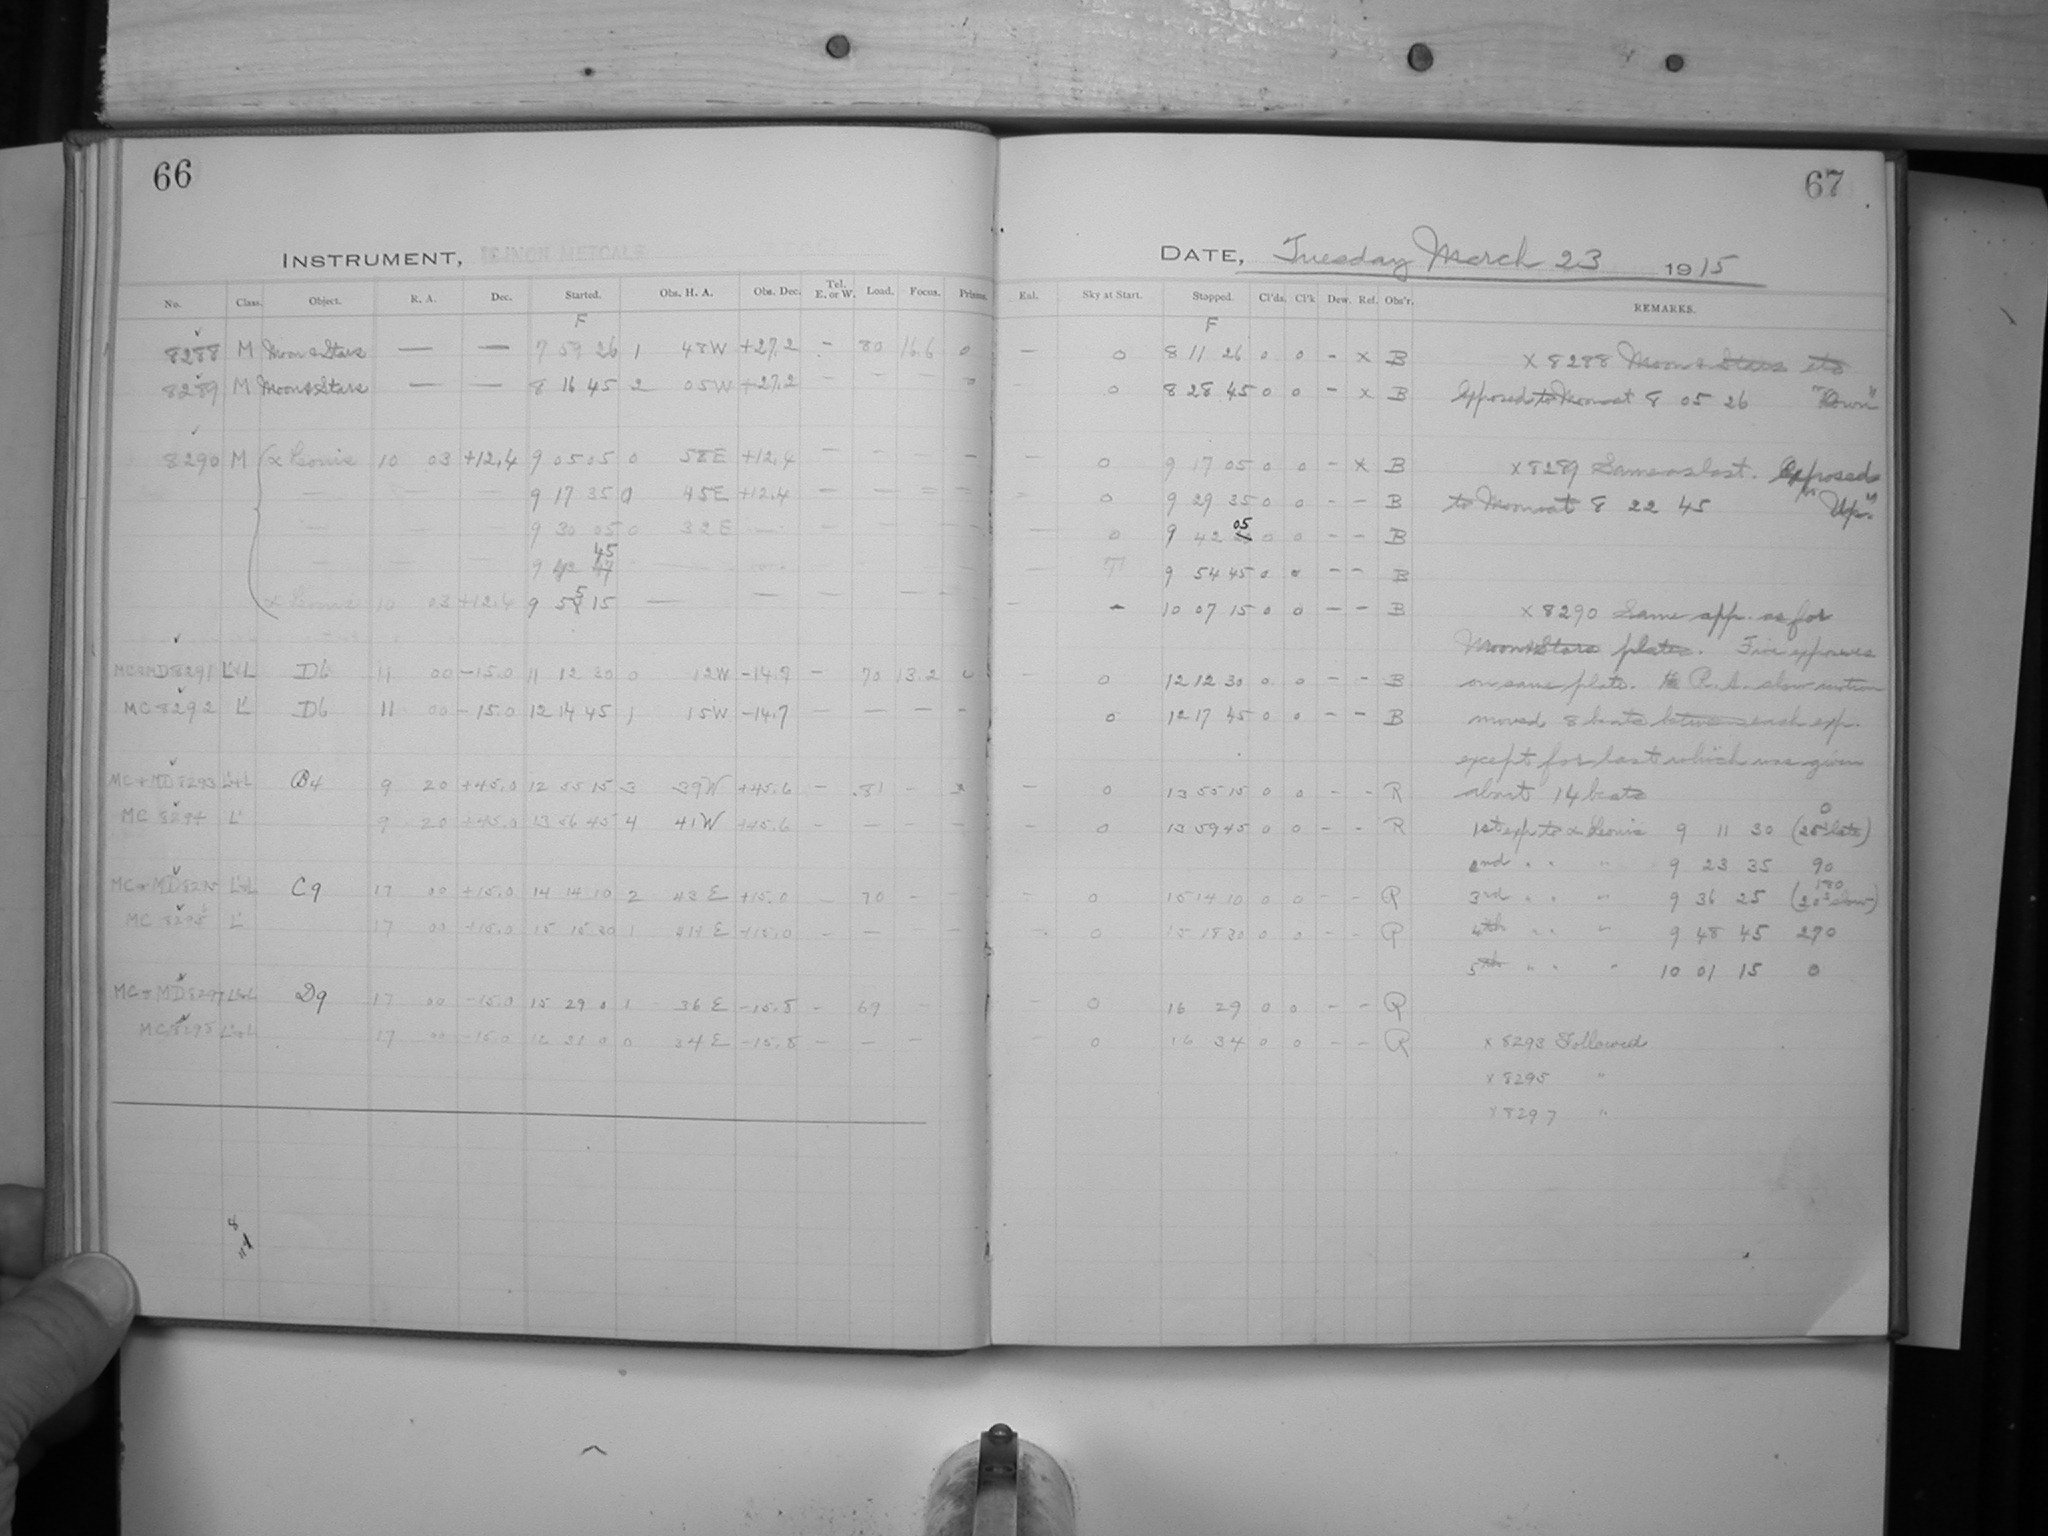 66
67
INSTRUMENT, 16 INCH METCALF
DATE, Tuesday March 23 1915
No. Class. Object. R. A. Dec. Started. Obs. H. A. Obs. Dec. Tel. E. or W. Load. Focus. Prisms. Enl. Sky at Start. Stopped. Cl'ds. Cl'k Dew. Ref. Obs'r. REMARKS.
F F
8288 M Moon & Stars — — 7 59 26 1 48 W +27.2 - 80 16.6 0 — 0 8 11 26 0 0 - x B x 8288 Moon & Stars etc
8289 M Moon & Stars — — 8 16 45 2 05 W +27.2 - - - 0 - 0 8 28 45 0 0 - x B Exposed to Moon at 8 05 26 "Down"
8290 M α Leonis 10 03 +12.4 9 05 05 0 58 E +12.4 — - - — — 0 9 17 05 0 0 - x B x 8289 Same as last. Exposed
— — — 9 17 35 0 45 E +12.4 — — = — = 0 9 29 35 0 0 - - B to Moon at 8 22 45 "Up."
— — — 9 30 05 0 32 E — — — — — 0 9 42 05 0 0 - - B
— — — 9 42 45 — — — — 9 54 45 0 0 - - B
α Leonis 10 03 +12.4 9 55 15 — — — — - - 10 07 15 0 0 - - B x 8290 Same app. as for
Moon & Stars plates. Five exposures
MC & MD 8291 L'&L D6 11 00 -15.0 11 12 30 0 12 W -14.7 - 70 13.2 0 - 0 12 12 30 0 0 - - B on same plate. R. A. slow motion
MC 8292 L' D6 11 00 -15.0 12 14 45 1 15 W -14.7 — — — - 0 12 17 45 0 0 - - B moved 8 beats between each exp.
except for last which was given
MC + MD 8293 L'+L B4 9 20 +45.0 12 55 15 3 39 W +45.6 - .81 - x - 0 13 55 15 0 0 - - R about 14 beats
MC 8294 L' 9 20 +45.0 13 56 45 4 41 W +45.6 - - - - - 0 13 59 45 0 0 - - R 1st exp to α Leonis 9 11 30 0 (25s late)
2nd " " " 9 23 35 90
MC + MD 8295 L'+L C9 17 00 +15.0 14 14 10 2 43 E +15.0 - 70 - - - 0 15 14 10 0 0 - - R 3rd " " " 9 36 25 180 (20s slow)
MC 8296 L' 17 00 +15.0 15 15 30 1 41 E +15.0 - - - - - 0 15 18 30 0 0 - - R 4th " " " 9 48 45 270
5th " " " 10 01 15 0
MC + MD 8297 L'&L D9 17 00 -15.0 15 29 0 1 36 E -15.8 - 69 - - 0 16 29 0 0 - - R
MC 8298 L'&L 17 00 -15.0 16 31 0 0 34 E -15.8 - - - - 0 16 34 0 0 - - R x 8293 Followed
x 8295 "
x 8297 "
8